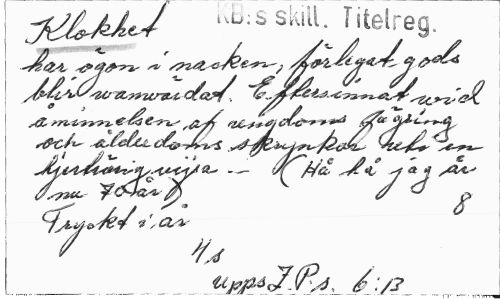 KB:s skill. Titelreg.
Klokhet
har ögon i nacken, förlegat gods
blir wanwärdat. Eftersinnat wid
åminnelsen af ungdoms fägring
och ålderdoms skrynkor uti en
hjertrörig visa -- (Hå hå jag är
nu 70 år)
Tryckt i år
8
4 s
Upps J.P:s. 6:13